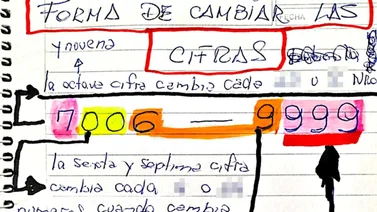 FORMA DE CAMBIAR LAS
FECHA
y novena
CIFRAS
la octava cifra cambia cada o NRO
7 006 — 9 999
la sexta y septima cifra
cambia cada o
numeros cuando cambia